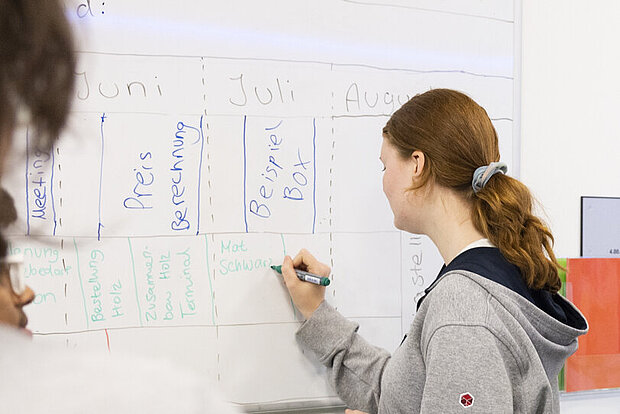 d:
Juni
Juli
Augus
Meeting
Preis
Berechnung
Beispiel
Box
Bestellung
Holz
Zusammen-
bau Holz
Terminal
Mat
schwarz